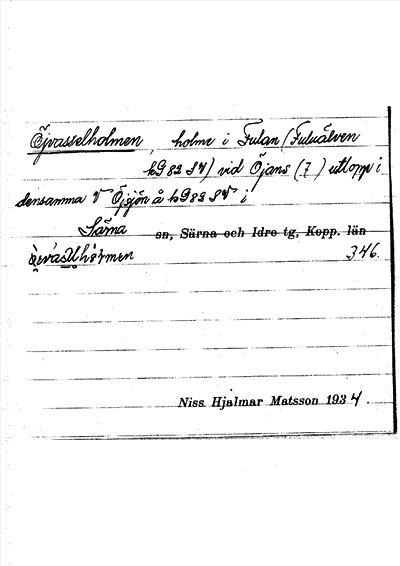 Öjvasselholmen, holme i Fulan (Fuluälven
kG 82 SV) vid Öjans (7) utlopp i
densamma V Öjsjön å kG 82 SV i
Särna sn, Särna och Idre tg, Kopp. län
346.
Niss Hjalmar Matsson 1934.